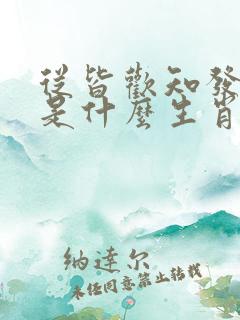 從皆歡知發
是什麼生肖
纳達尔
未经同意禁止转载